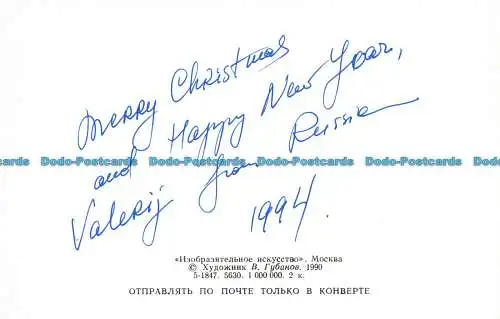 Merry Christmas
and Happy New Year,
Valerij from Russia
1994.
Dodo-Postcards Dodo-Postcards Dodo-Postcards Dodo-Postcards Dodo-Postcards
«Изобразительное искусство». Москва
© Художник В. Губанов. 1990
5-1847. 5630. 1 000 000. 2 к.
ОТПРАВЛЯТЬ ПО ПОЧТЕ ТОЛЬКО В КОНВЕРТЕ